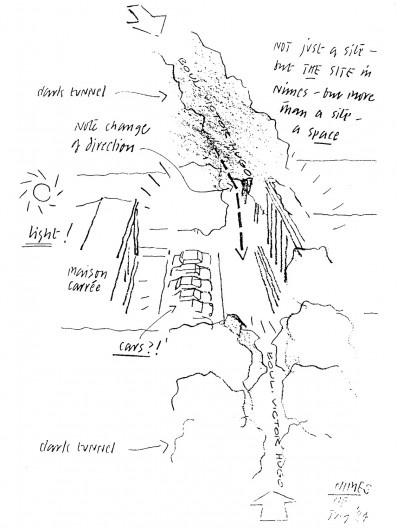 NOT just a site -
but THE SITE in
Nimes - but more
than a site -
a space
dark tunnel
BOUL. VICTOR HUGO
Note change
of direction
light!
maison
carrée
cars?!
BOUL. VICTOR HUGO
dark tunnel
NIMES
NF